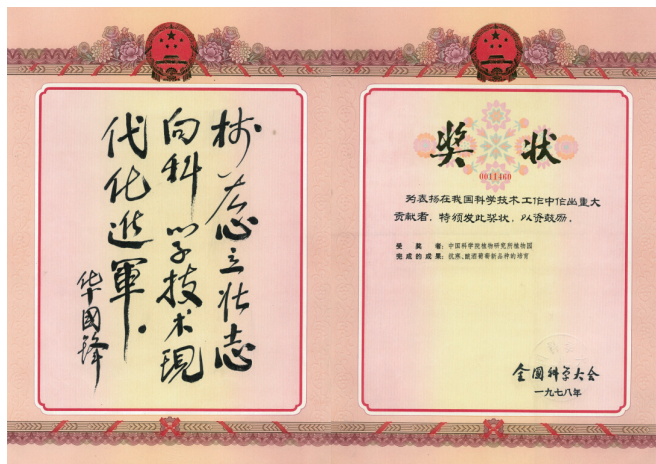 树雄心立壮志
向科学技术现
代化进军。
华国锋
奖状
0011460
为表扬在我国科学技术工作中作出重大
贡献者，特颁发此奖状，以资鼓励。
受奖者：中国科学院植物研究所植物园
完成的成果：抗寒、酿酒葡萄新品种的培育
全国科学大会
一九七八年